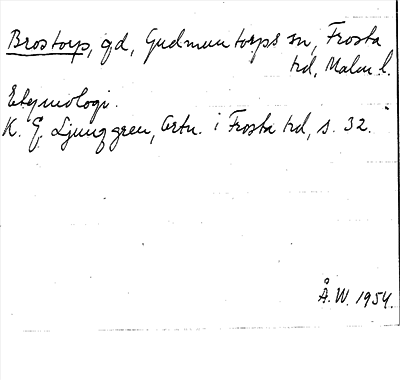 Brostorp, gd, Gudmuntorps sn, Frosta
hd, Malm. l.
Etymologi.
K. G. Ljunggren, Ortn. i Frosta hd, s. 32.
Å. W. 1954.